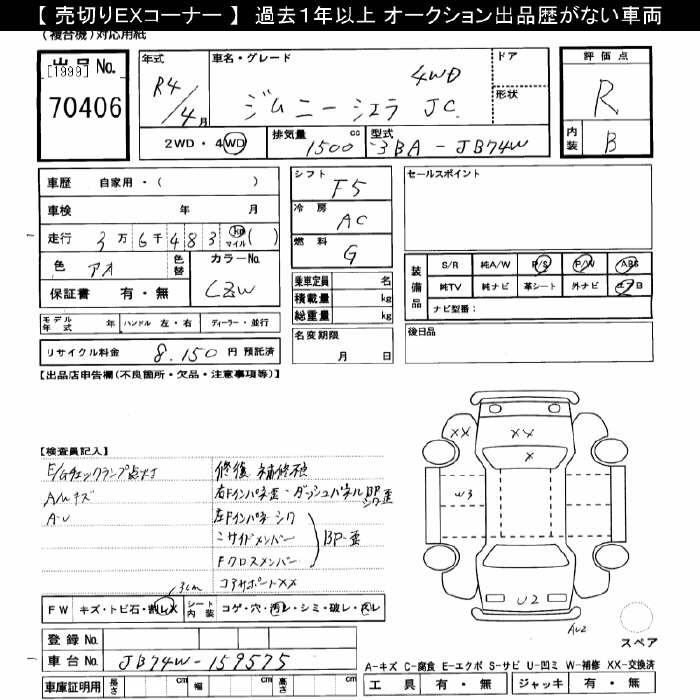 【 売切りEXコーナー 】 過去1年以上 オークション出品歴がない車両
(複合機)対応用紙
出品 No.
[1999]
70406
年式
R4/4月
車名・グレード
4WD
ジムニーシエラ JC
ドア
形状
評価点
R
内装
B
2WD・4WD
排気量
1500 cc
型式
3BA-JB74W
車歴 自家用・( )
車検 年 月
走行 3万6千483 km マイル ( )
色 アオ
色替
カラーNo.
CZW
保証書 有・無
シフト
F5
冷房
AC
燃料
G
乗車定員 名
積載量 kg
総重量 kg
名変期限
月 日
セールスポイント
装備品
S/R 純A/W P/S P/W ABS
純TV 純ナビ 革シート 外ナビ エアB
ナビ型番:
後日品
モデル年式 年 ハンドル 左・右 ディーラー・並行
リサイクル料金 8.150 円 預託済
【出品店申告欄(不良箇所・欠品・注意事項等)】
【検査員記入】
E/Gチェックランプ点灯
AWキズ
A-U
修復 補修痕
右Fインパネ歪・ダッシュパネルBP シワ歪
左Fインパネ シワ
〃サイドメンバー
Fクロスメンバー
BP-歪
コアサポートXX
3cm
FW キズ・トビ石・割レX
シート内装 コゲ・穴・汚レ・シミ・破レ・切レ
XX
XX
X
W3
U2
AU2
スペア
登録 No.
車台 No. JB74W-159575
車庫証明用 長さ cm 幅 cm 高さ cm
A-キズ C-腐食 E-エクボ S-サビ U-凹ミ W-補修 XX-交換済
工具 有・無 ジャッキ 有・無